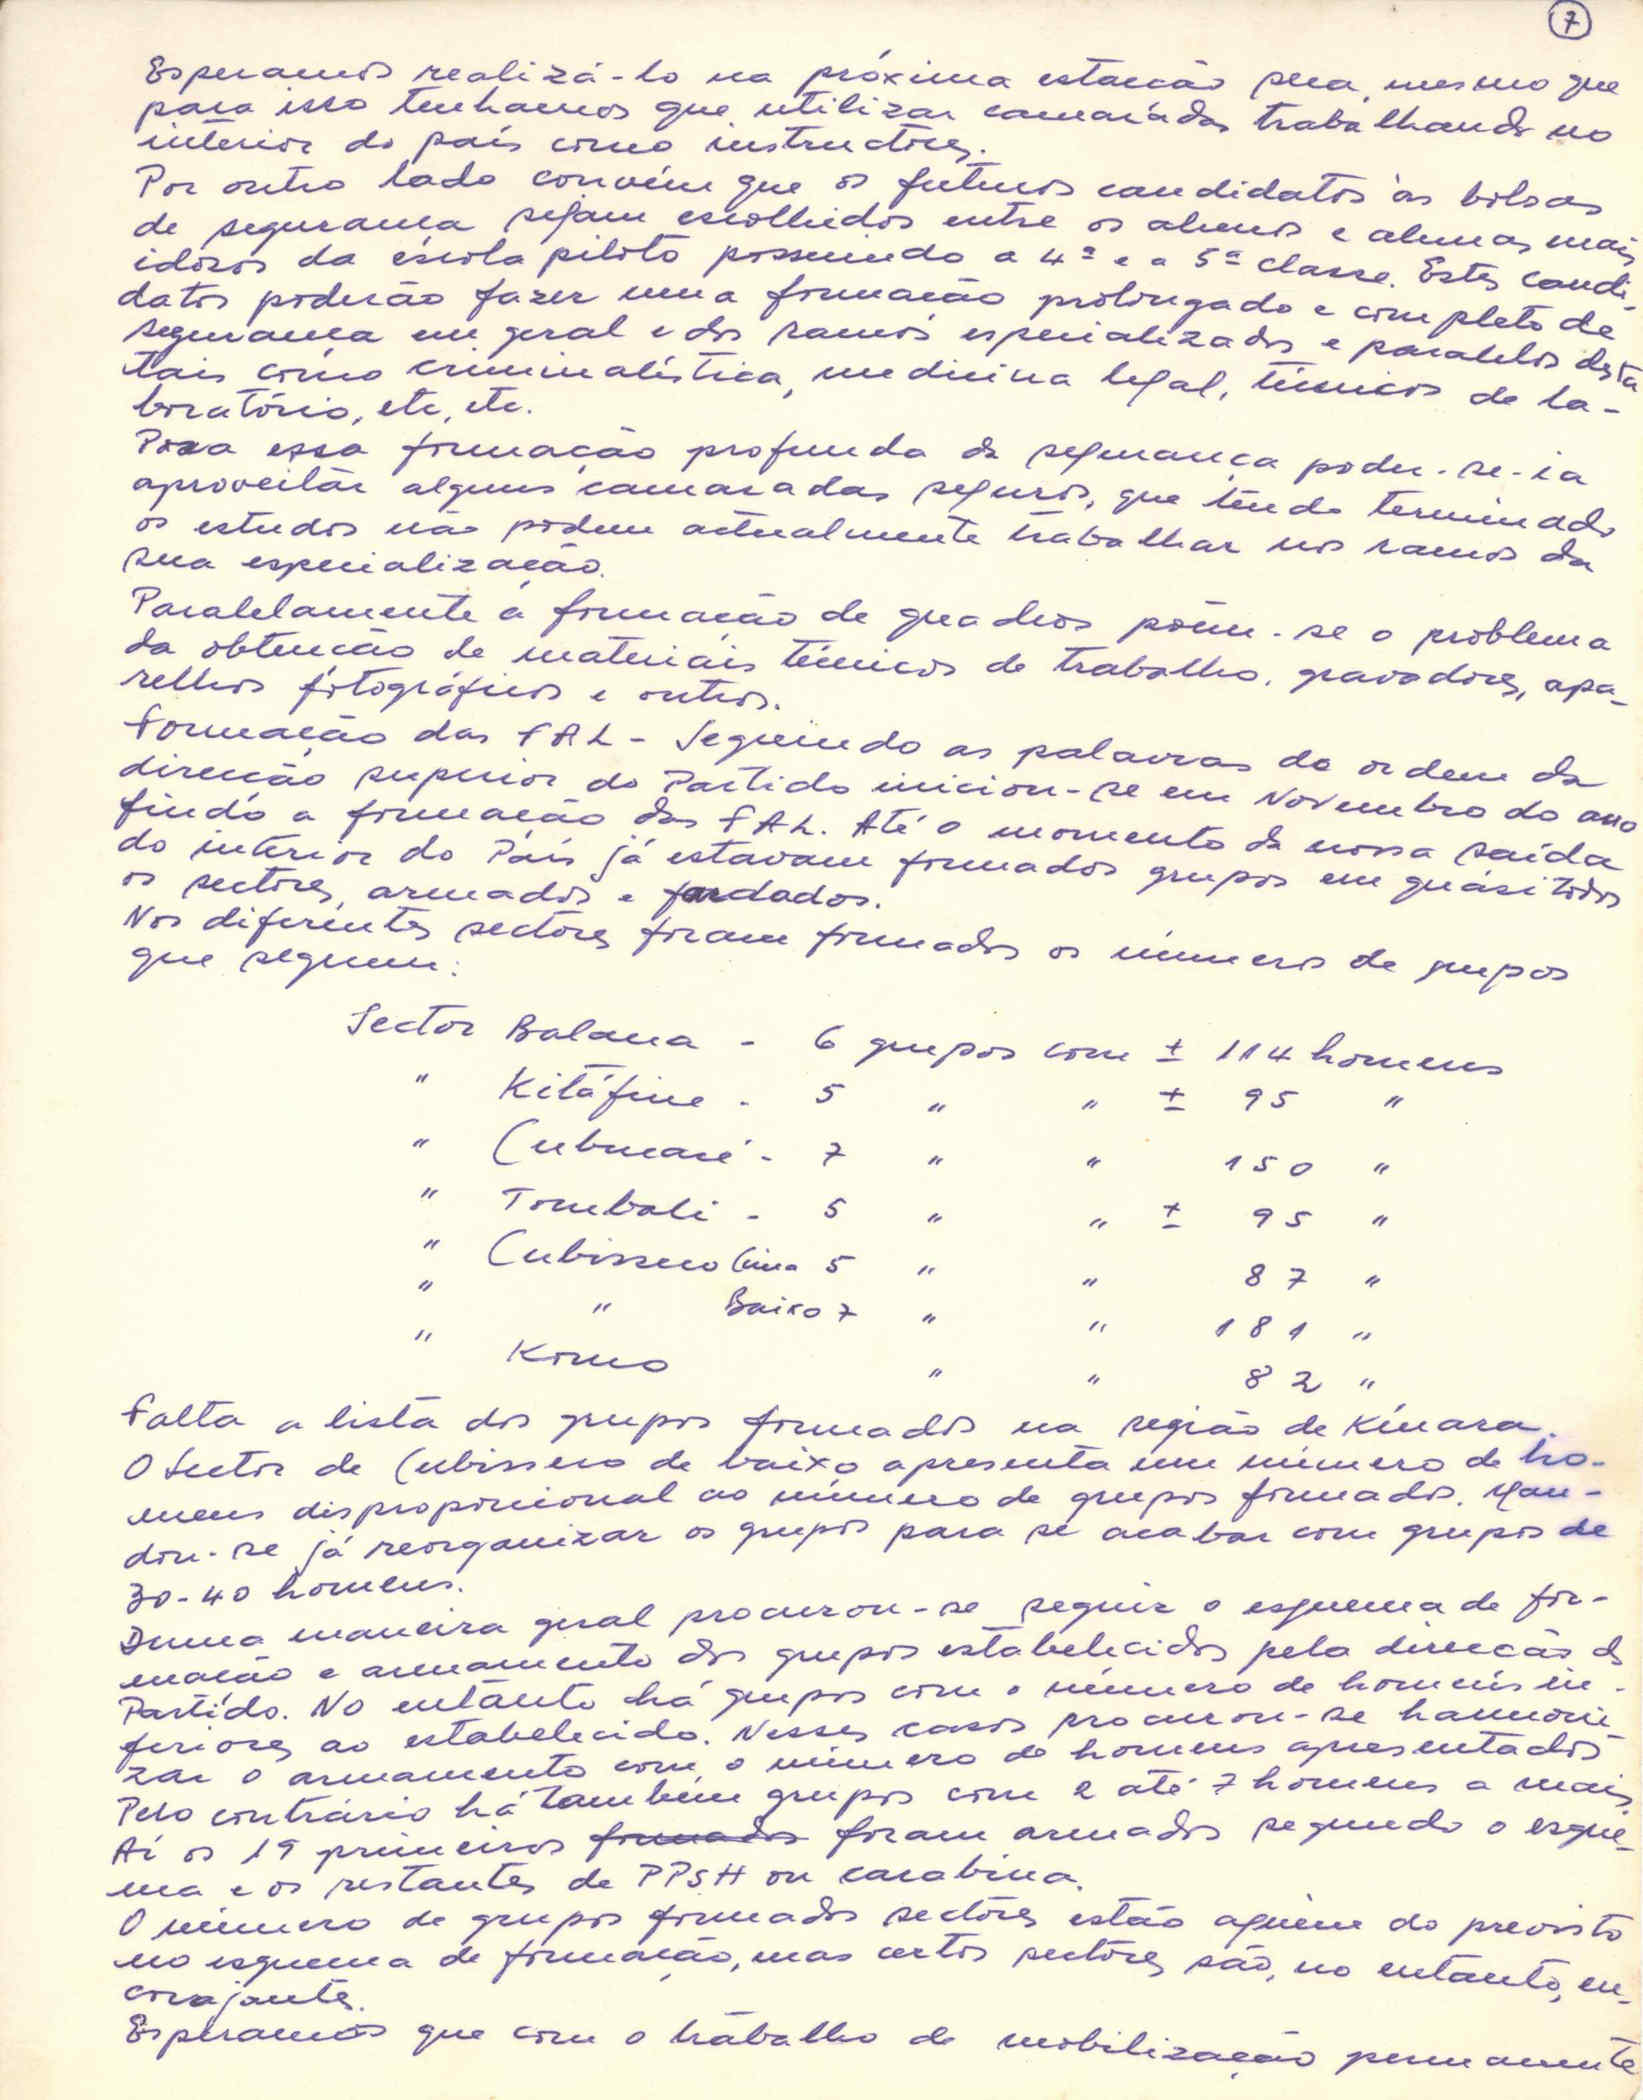 7
Esperamos realizá-lo na próxima estação seca, mesmo que
para isso tenhamos que utilizar camaradas trabalhando no
interior do país como instructores.
Por outro lado convém que os futuros candidatos às bolsas
de segurança sejam escolhidos entre os alunos e alunas mais
idosos da escola piloto possuindo a 4ª e a 5ª classe. Estes candi-
datos poderão fazer uma formação prolongada e completa de
segurança em geral e dos ramos especializados e paralelos desta
tais como criminalística, medicina legal, técnicos de la-
boratório, etc, etc.
Para essa formação profunda da segurança poder-se-ia
aproveitar alguns camaradas seguros, que tendo terminado
os estudos não podem actualmente trabalhar nos ramos da
sua especialização.
Paralelamente à formação de quadros põem-se o problema
da obtenção de materiais técnicos de trabalho, gravadores, apa-
relhos fotográficos e outros.
Formação das FAL - Seguindo as palavras de ordem da
direcção superior do Partido iniciou-se em Novembro do ano
findo a formação das FAL. Até o momento da nossa saída
do interior do País já estavam formados grupos em quási todos
os sectores, armados e fardados.
Nos diferentes sectores foram formados os números de grupos
que seguem:
Sector Balana - 6 grupos com ± 114 homens
" Kitáfine - 5 " " ± 95 "
" Cubucaré - 7 " " 150 "
" Tombali - 5 " " ± 95 "
" Cubisseco Cima 5 " " 87 "
" " Baixo 7 " " 181 "
" Komo " " 82 "
Falta a lista dos grupos formados na região de Kínara.
O Sector de Cubisseco de baixo apresenta um número de ho-
mens disproporcional ao número de grupos formados. Man-
dou-se já reorganizar os grupos para se acabar com grupos de
30-40 homens.
Duma maneira geral procurou-se seguir o esquema de for-
mação e armamento dos grupos estabelecidos pela direcção do
Partido. No entanto há grupos com o número de homens in-
feriores ao estabelecido. Nesses casos procurou-se harmoni-
zar o armamento com o número de homens apresentados
Pelo contrário há também grupos com 2 até 7 homens a mais
Aí os 19 primeiros formados foram armados segundo o esque-
ma e os restantes de PPSH ou carabina.
O número de grupos formados sectores estão aquém do previsto
no esquema de formação, mas certos sectores são, no entanto, en-
corajantes.
Esperamos que com o trabalho de mobilização permanente